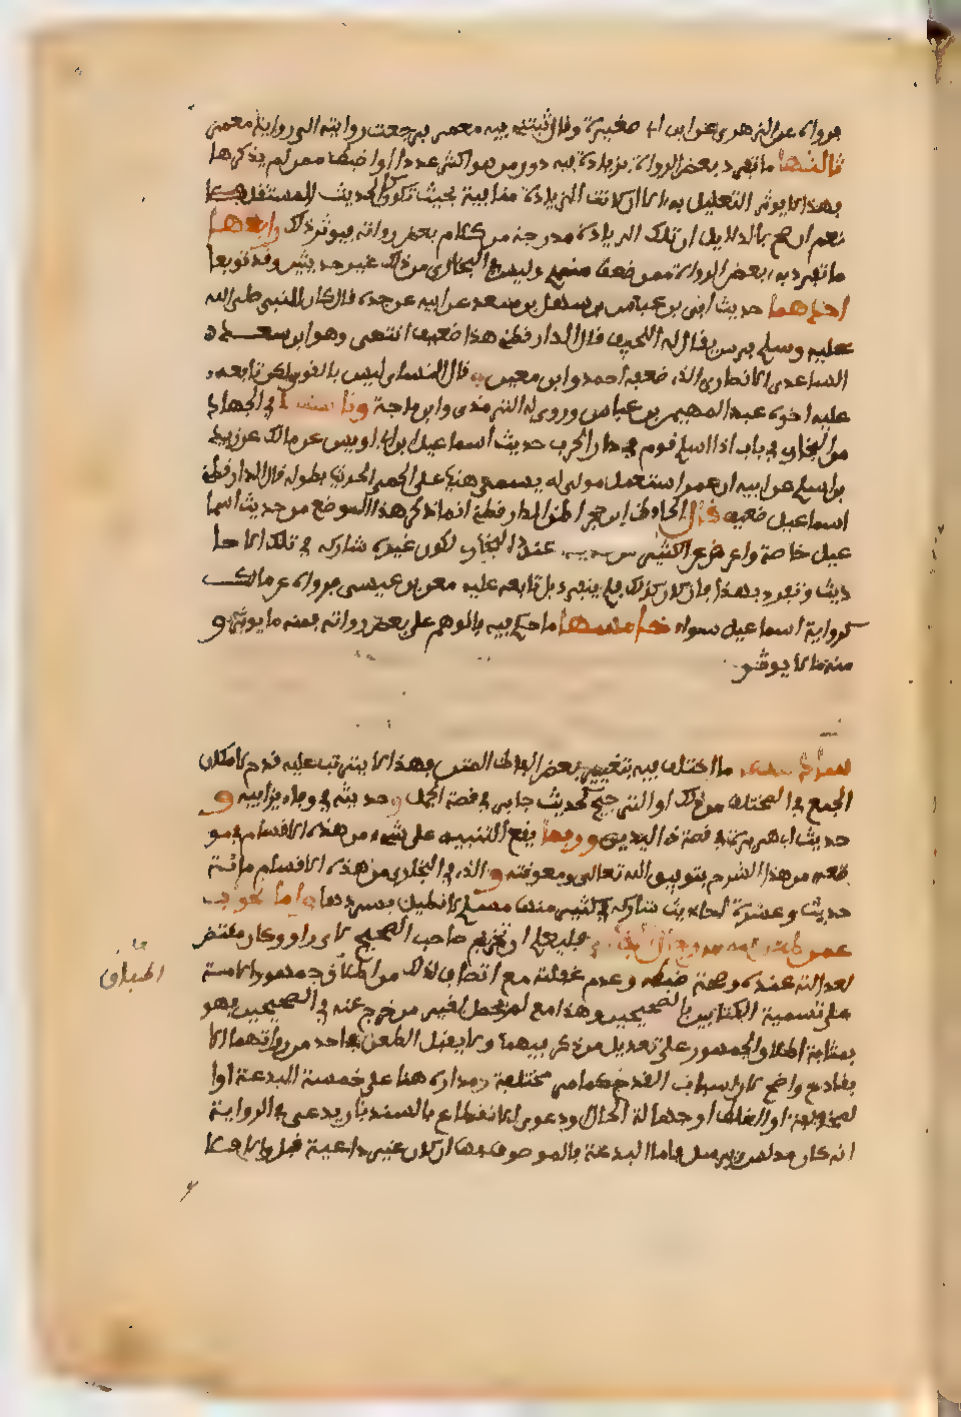 فرواه عن الزهري عن ابن ابي صغيرة وقال ثبتنيه فيه معمر فرجعت روايته الى رواية معمر
ثالثها ما تفرد بعض الرواة بزيادة فيه دون من هو اكثر عددا او اضبط ممن لم يذكرها
فهذا لا يوثر التعليل به الا ان كانت الزيادة منافية بحيث تكون كالحديث المستقل
نعم ان صح بالدلايل ان تلك الزيادة مدرجة من كلام بعض رواته فيوثر ذلك رابعها
ما تفرد به بعض الرواة ممن ضعف منهم وليس في البخاري من ذلك غير حديثين وقد توبعا
احدهما حديث ابي بن عباس بن سهل بن سعد عن ابيه عن جده قال كان للنبي صلى الله
عليه وسلم فرس يقال له اللحيف قال الدارقطني هذا ضعيف انتهى وهو ابن سعد
الساعدي الانصاري الذي ضعفه احمد وابن معين قال النساءي ليس بالقوي لكن تابعه
عليه اخوه عبد المهيمن بن عباس وروى له الترمذي وابن ماجة وثانيهما في الجهاد
من البخاري في باب اذا اسلم قوم في دار الحرب حديث اسماعيل بن ابي اويس عن مالك عن زيد
بن اسلم عن ابيه ان عمر استعمل مولى له يسمى هنيا على الحمى الحديث بطوله قال الدارقطني
اسماعيل ضعيف قال الحافظ ابن حجر اظن الدارقطني انما ذكر هذا الموضع من حديث اسما
عيل خاصة واعرض عن الكثير من حديثه عند البخاري لكون غيره شاركه في تلك الاحا
ديث وتفرد بهذا فان كان كذلك فلم ينفرد بل تابعه عليه معن بن عيسى فرواه عن مالك
كرواية اسماعيل سواء خامسها ما حكم فيه بالوهم على بعض رواته فمنه ما يوثر و
منه ما لا يوثر
سادسها ما اختلف فيه بتغيير بعض الفاظ المتن فهذا لا يترتب عليه قدح لامكان
الجمع في المختلف من ذلك او الترجيح كحديث جابر في قصة الجمل وحديثه في وفاء دين ابيه و
حديث ابي هريرة في قصة ذي اليدين وربما يقع التنبيه على شيء من هذه الاقسام في مو
ضعه من هذا الشرح بتوفيق الله تعالى ومعونته والذي في البخاري من هذه الاقسام مائة
حديث وعشرة احاديث شاركه في كثير منها مسلم لا نطيل بسردها واما الجواب
عمن طعن فيه من رجال البخاري فليعلم ان تخريج صاحب الصحيح لاي راو كان مقتض
لعدالته عنده وصحة ضبطه وعدم غفلته مع انضاف لذلك من اطباق جمهور الامة
على تسمية الكتابين بالصحيحين وهذا مع لم يحصل لغير من خرج عنه في الصحيحين فهو
بمثابة اطباق الجمهور على تعديل من ذكر فيهما ولا يقبل الطعن في احد من رواتهما الا
بقادح واضح لان اسباب القدح كما مر مختلفة ومداره هنا على خمسة البدعة او ا
لمخالفة او الغلط او جهالة الحال ودعوى الانقطاع بالسند بان يدعى في الرواية
انه كان مدلس او يرسل فاما البدعة فالموصوف بها ان كان غير داعية قبل والا فلا
اطباق